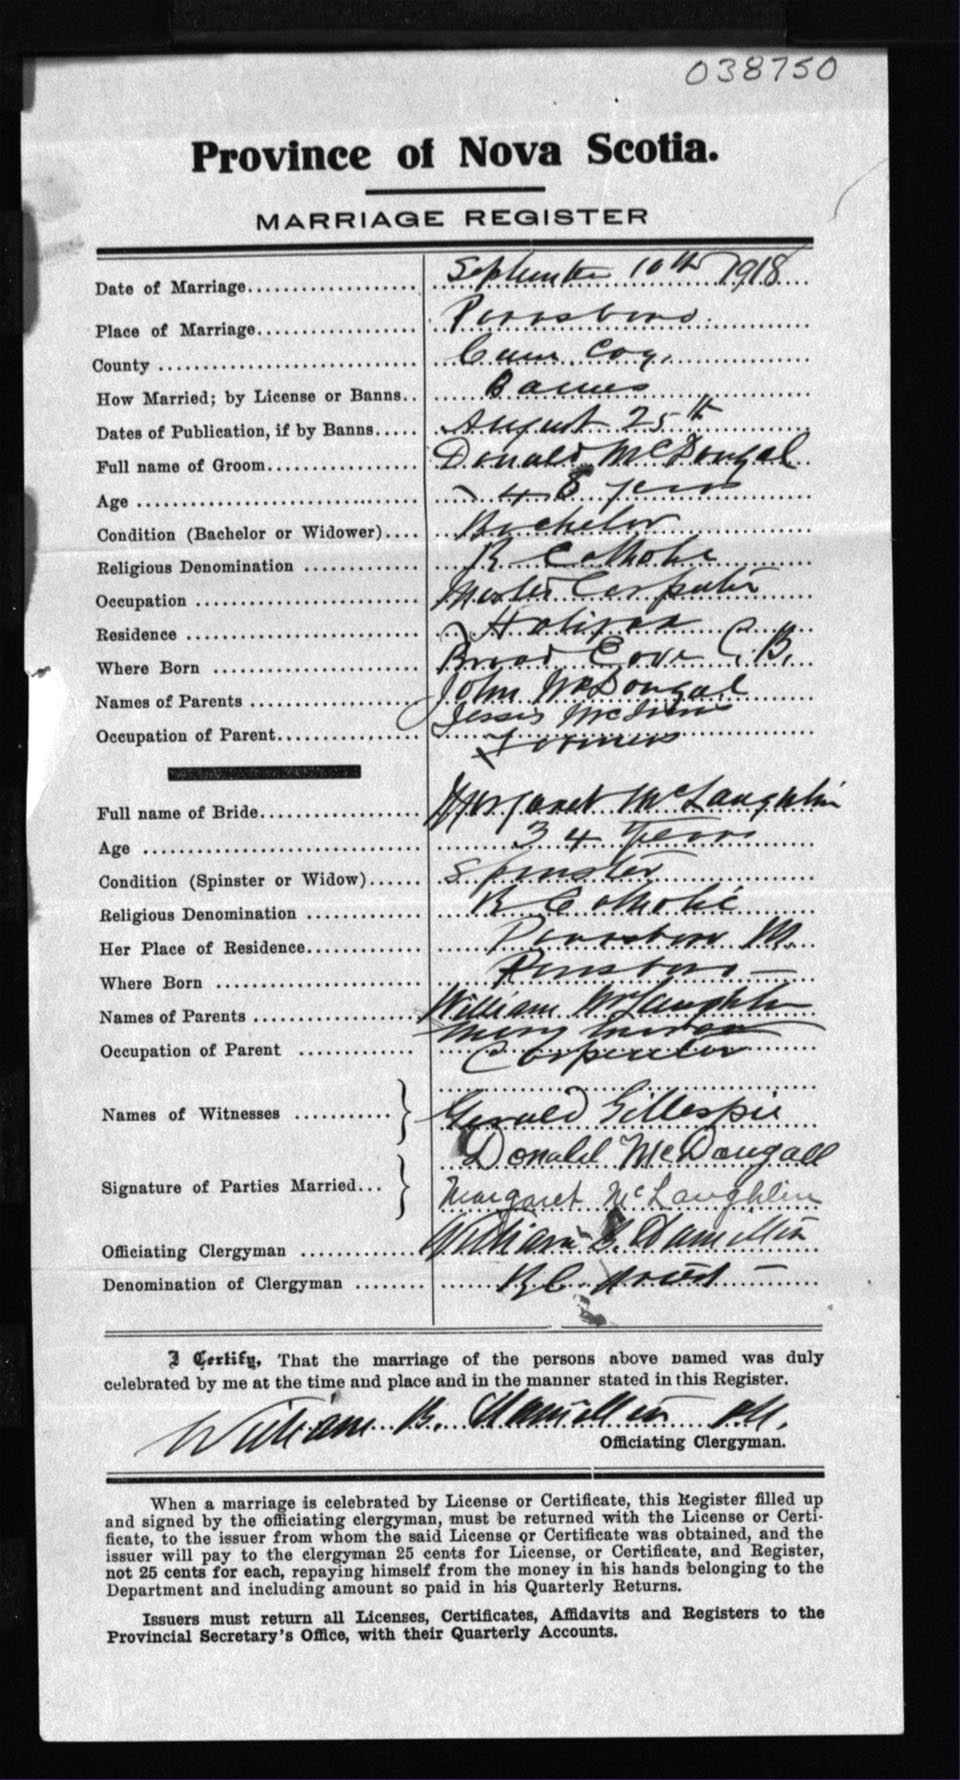 038750
Province of Nova Scotia.
MARRIAGE REGISTER
Date of Marriage September 10th 1918
Place of Marriage Parrsboro
County Cum Coy.
How Married; by License or Banns
Dates of Publication, if by Banns August 25th
Full name of Groom Donald McDougal
Age 48 years
Condition (Bachelor or Widower) Bachelor
Religious Denomination R Catholic
Occupation Master Carpenter
Residence Halifax
Where Born Broad Cove C.B.
Names of Parents John McDougal
Jessis
Occupation of Parent Farmers
Full name of Bride Margaret McLaughlin
Age 34 Years
Condition (Spinster or Widow) Spinster
Religious Denomination R Catholic
Her Place of Residence Parrsboro
Where Born Parrsboro —
Names of Parents William McLaughlin
Mary
Occupation of Parent Carpenter
Names of Witnesses } Gerald Gillespie
Donald McDougall
Signature of Parties Married... } Margaret McLaughlin
Officiating Clergyman William B. Hamilton
Denomination of Clergyman RC Priest —
I Certify, That the marriage of the persons above named was duly
celebrated by me at the time and place and in the manner stated in this Register.
William B. Hamilton
Officiating Clergyman.
When a marriage is celebrated by License or Certificate, this Register filled up
and signed by the officiating clergyman, must be returned with the License or Certi-
ficate, to the issuer from whom the said License or Certificate was obtained, and the
issuer will pay to the clergyman 25 cents for License, or Certificate, and Register,
not 25 cents for each, repaying himself from the money in his hands belonging to the
Department and including amount so paid in his Quarterly Returns.
Issuers must return all Licenses, Certificates, Affidavits and Registers to the
Provincial Secretary's Office, with their Quarterly Accounts.